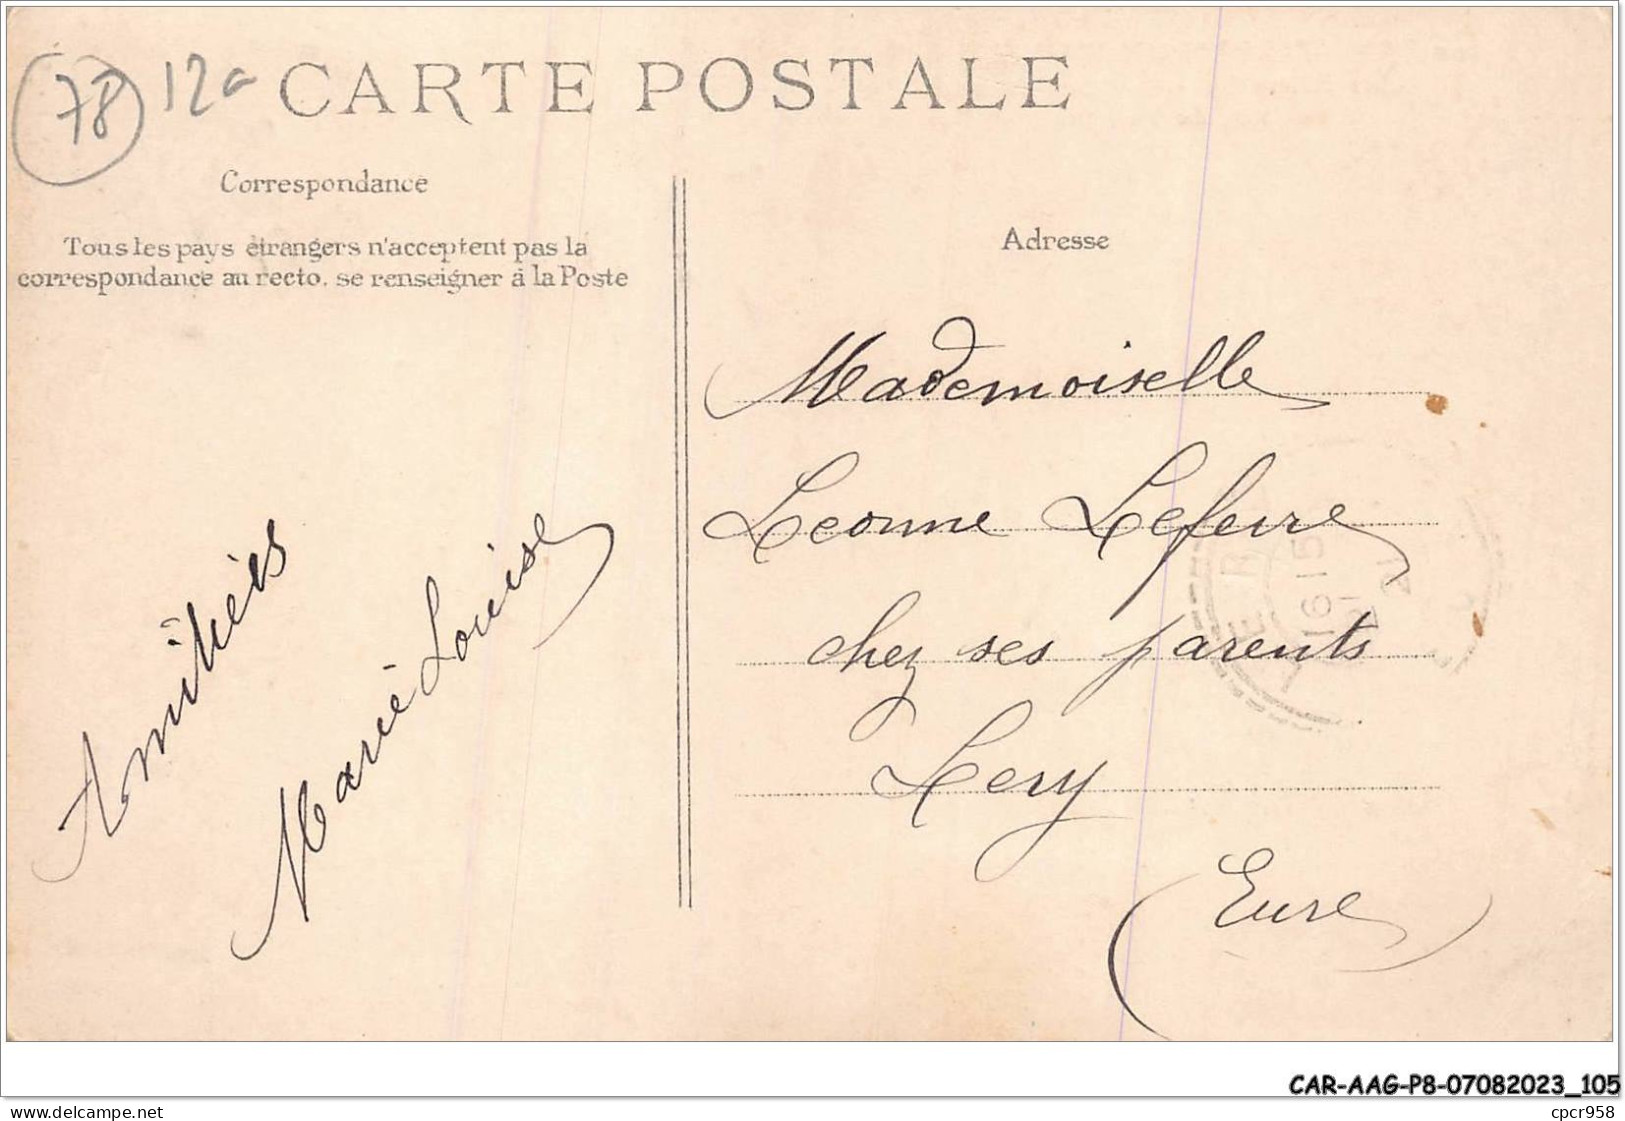 78 12a
CARTE POSTALE
Correspondance
Tous les pays étrangers n'acceptent pas la
correspondance au recto, se renseigner à la Poste
Amitiés
Marie Louise
Adresse
Mademoiselle
Leonne Lefevre
chez ses parents
Lery
(Eure)
16 15
21
CAR-AAG-P8-07082023_105
cpcr958